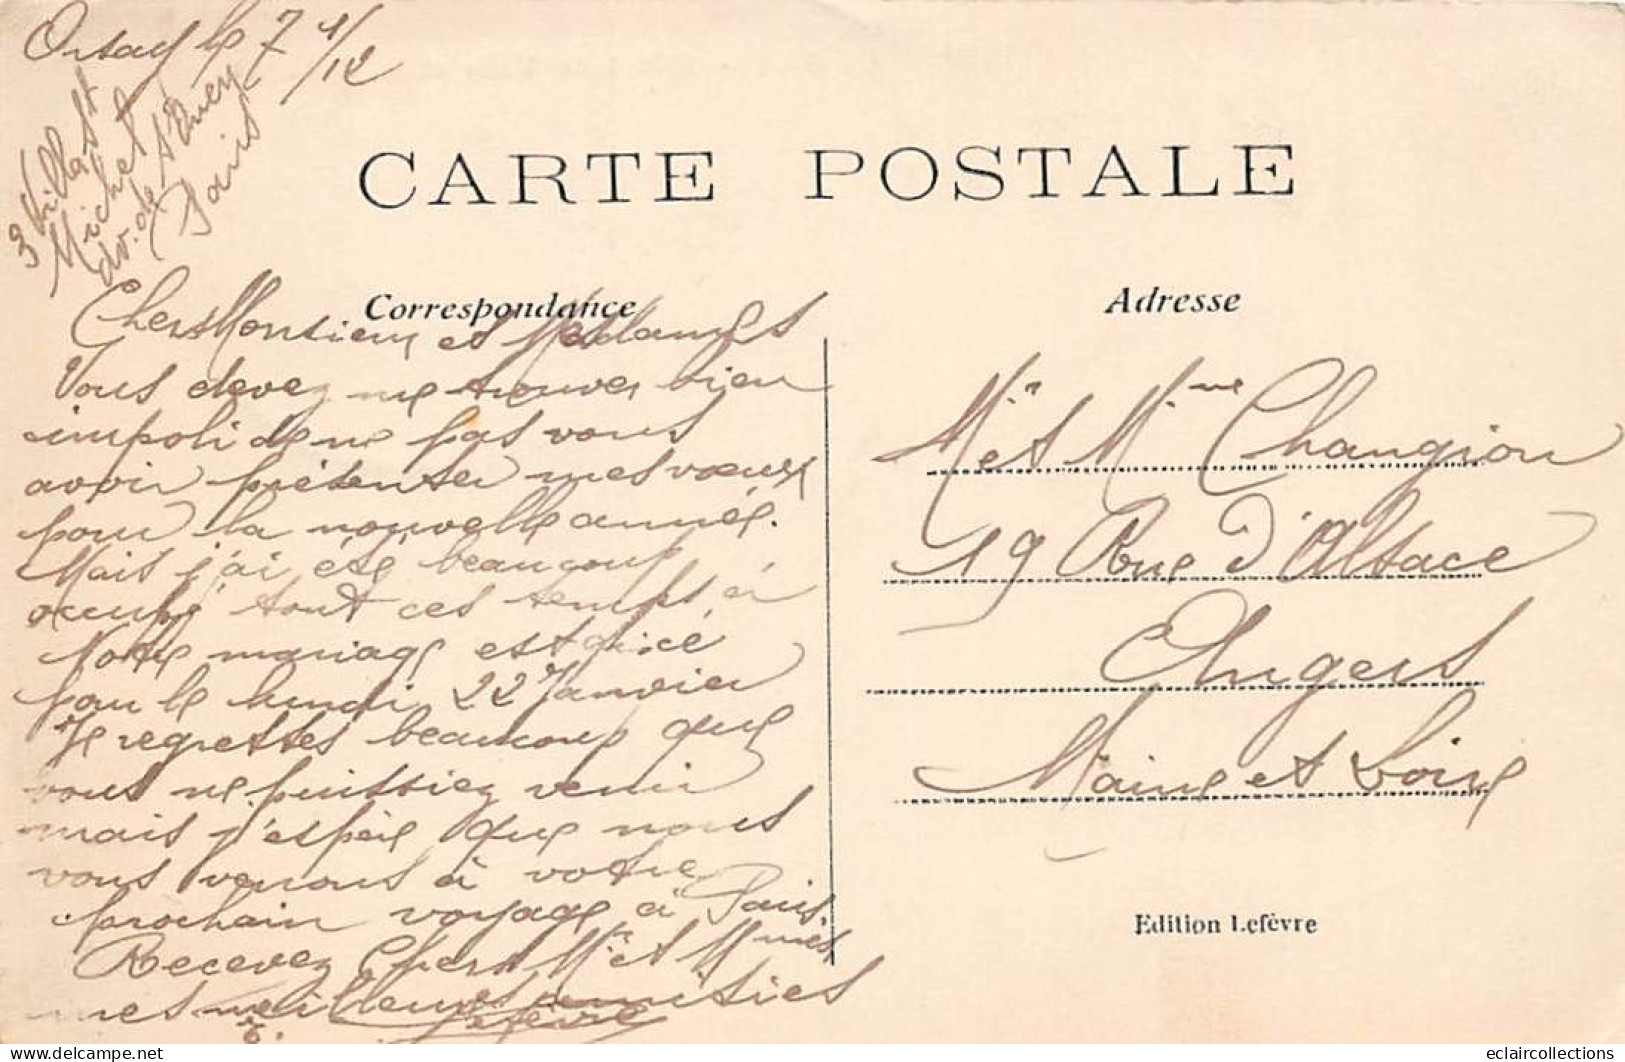 Orsay le 7 1/12
3 Villa St
Michel
av. de St Ouen
Paris
CARTE POSTALE
Correspondance
Chers Monsieur et Mesdames
Vous devez me trouver bien
impoli de ne pas vous
avoir présenter mes vœux
pour la nouvelle année.
Mais j'ai été beaucoup
occupé tout ces temps, ci
Notre mariage est fixé
pour le lundi 22 Janvier
Je regrettes beaucoup que
vous ne puissiez venir
mais j'espère que nous
vous verrons à votre
prochain voyage à Paris.
Recevez Chers Mr et Mmes
mes meilleures amitiés
Lefèvre
Adresse
Mr et Mme Changion
19 Rue d'Alsace
Angers
Maine et Loire
Edition Lefèvre
eclaircollections